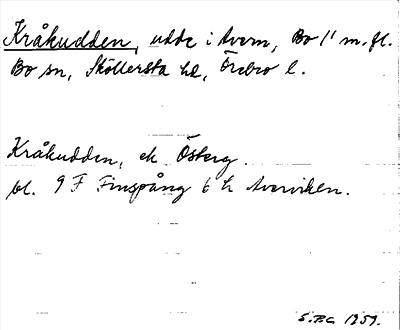 Kråkudden, udde i Avern, Bo 1¹ m.fl.
Bo sn, Sköllersta hd, Örebro l.
Kråkudden, ek Österg.
bl. 9 F Finspång 6 h Averviken.
1959.